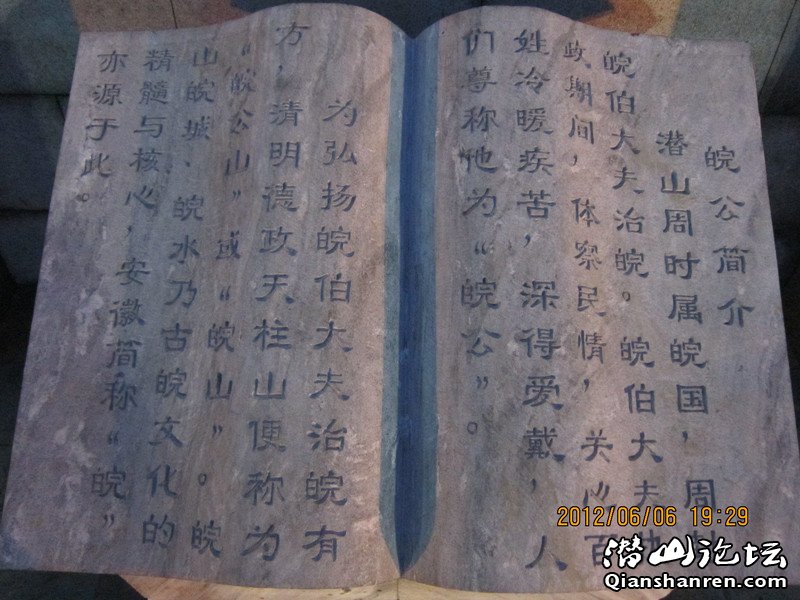 皖公简介
潜山周时属皖国，周
皖伯大夫治皖。皖伯大夫
政期间，体察民情，关心百
姓冷暖疾苦，深得爱戴，人
们尊称他为“皖公”。
为弘扬皖伯大夫治皖有
方，清明德政天柱山便称为
“皖公山”或“皖山”。皖
山皖城、皖水乃古皖文化的
精髓与核心，安徽简称“皖”
亦源于此。
2012/06/06 19:29
潜山论坛
Qianshanren.com